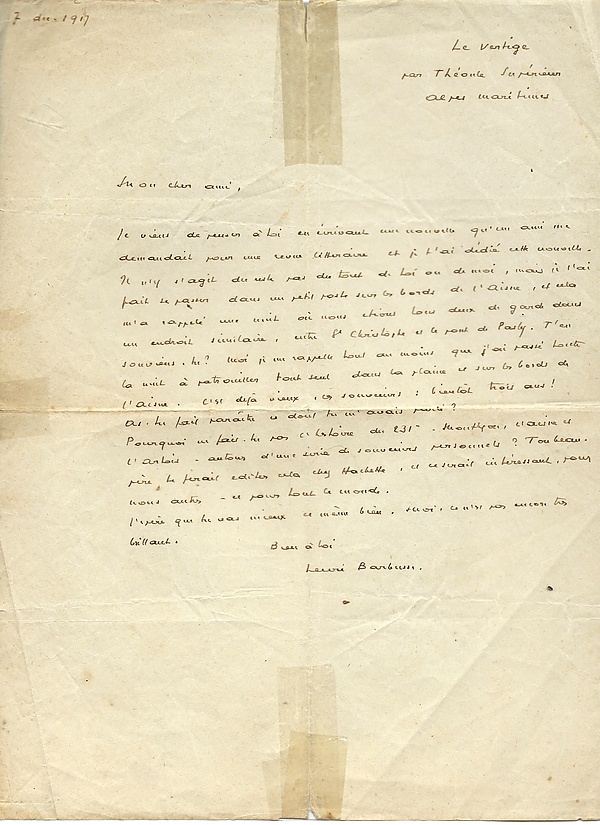 7 déc. 1917
Le Vertige
par Théoule Supérieur
Alpes maritimes
Mon cher ami,
Je viens de penser à toi en écrivant une nouvelle qu'un ami me
demandait pour une revue littéraire et je t'ai dédié cette nouvelle.
Il n'y s'agit du reste pas du tout de toi ou de moi, mais je l'ai
fait se passer dans un petit poste sur les bords de l'Aisne, et cela
m'a rappelé une nuit où nous étions tous deux de garde dans
un endroit similaire, entre St Christophe et le pont de Pasly. T'en
souviens-tu? Moi je me rappelle tout au moins que j'ai passé toute
la nuit à patrouiller tout seul dans la plaine et sur les bords de
l'Aisne. C'est déjà vieux, ces souvenirs : bientôt trois ans!
As-tu fait paraître ce dont tu m'avais parlé?
Pourquoi ne fais-tu pas l'histoire du 231e - Monthyon, l'Aisne et
l'Artois - autour d'une série de souvenirs personnels? Ton beau-
père te ferait éditer cela chez Hachette, et ce serait intéressant, pour
nous autres - et pour tout le monde.
J'espère que tu vas mieux et même bien. Moi, ce n'est pas encore très
brillant.
Bien à toi
Henri Barbusse.